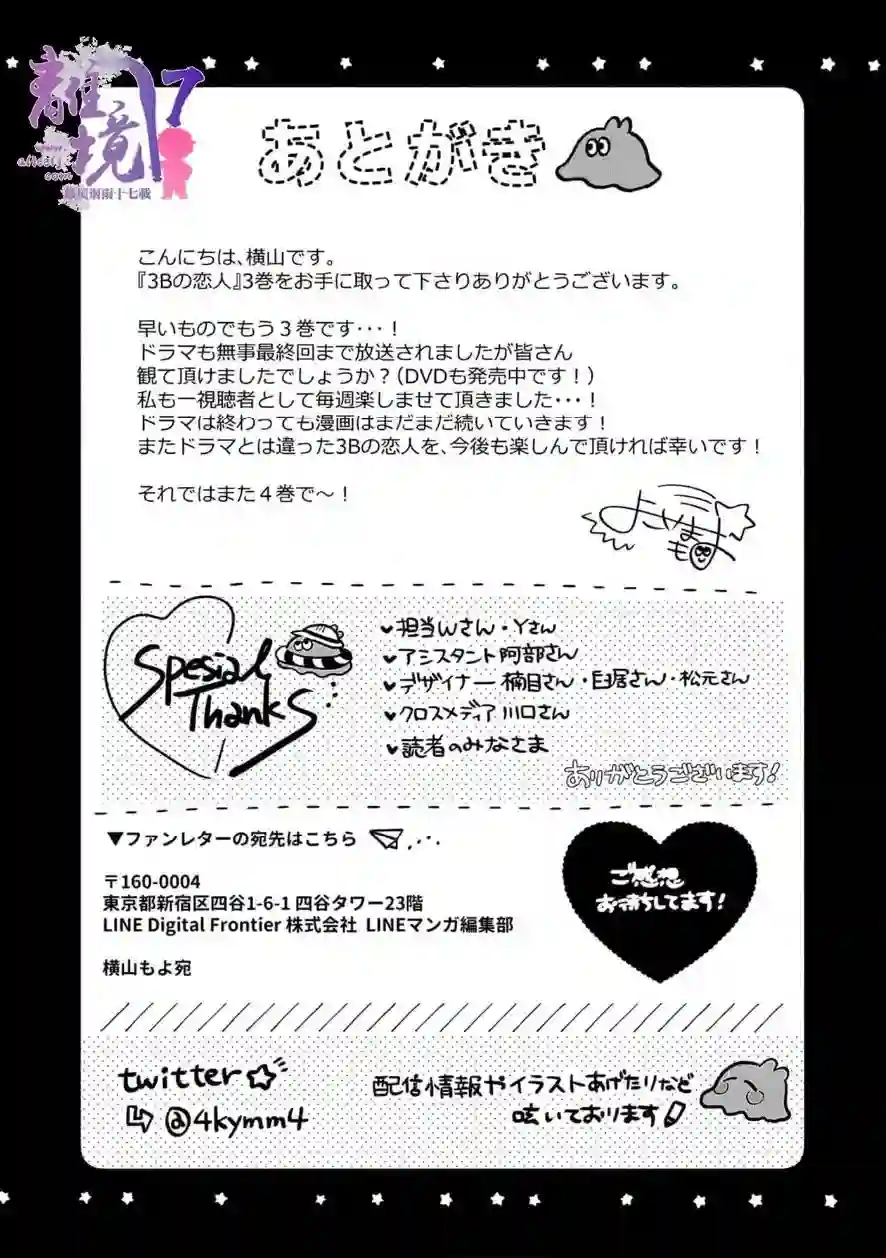 離境
17
www.
あとがき
こんにちは、横山です。
『3Bの恋人』3巻をお手に取って下さりありがとうございます。
早いものでもう３巻です･･･！
ドラマも無事最終回まで放送されましたが皆さん
観て頂けましたでしょうか？（DVDも発売中です！）
私も一視聴者として毎週楽しませて頂きました･･･！
ドラマは終わっても漫画はまだまだ続いていきます！
またドラマとは違った3Bの恋人を、今後も楽しんで頂ければ幸いです！
それではまた４巻で〜！
Spesial
Thanks
担当Wさん・Yさん
アシスタント阿部さん
デザイナー 楠目さん・臼居さん・松元さん
クロスメディア 川口さん
読者のみなさま
ありがとうございます!
▼ファンレターの宛先はこちら
〒160-0004
東京都新宿区四谷1-6-1 四谷タワー23階
LINE Digital Frontier 株式会社 LINEマンガ編集部
横山もよ宛
ご感想
お待ちしてます!
twitter
@4kymm4
配信情報やイラストあげたりなど
呟いております